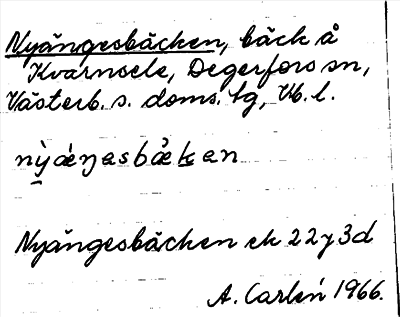 Nyängesbäcken, bäck å
Kvarnsele, Degerfors sn,
Västerb. s. doms. tg, Vb. l.
nỳǽŋasbæ̀kan
Nyängesbäcken ek 22y3d
A. Carlén 1966.